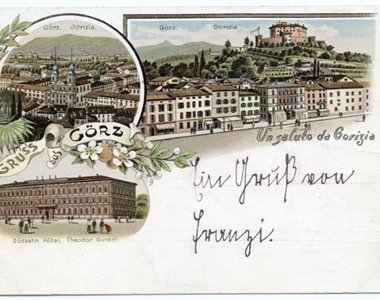 Görz. Gorizia.
Görz. Gorizia.
GRUSS
aus
GÖRZ
Un saluto da Gorizia
Ein Gruß von
Franzi.
Südbahn Hôtel, Theodor Gunkel.